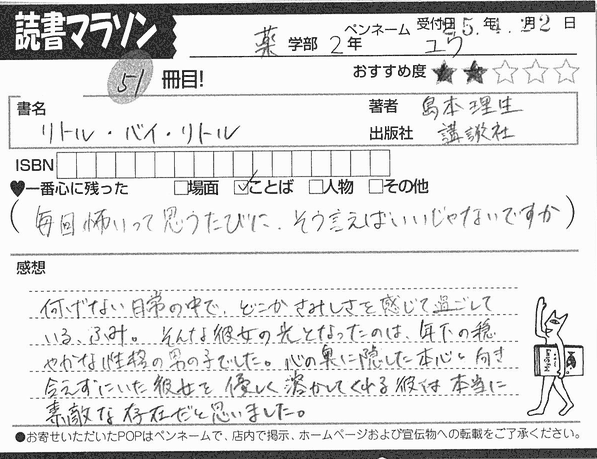 読書マラソン
薬学部 2年 ペンネーム ユウ 受付日 25年.4.22日
51冊目!
おすすめ度 ★★☆☆☆
書名 リトル・バイ・リトル
著者 島本理生
出版社 講談社
ISBN
♥一番心に残った □場面 ☑ことば □人物 □その他
(毎回怖いって思うたびに、そう言えばいいじゃないですか)
感想
何げない日常の中で、どこかさみしさを感じて過ごして
いる、ふみ。そんな彼女の光となったのは、年下の穏
やかな性格の男の子でした。心の奥に隠した本心と向き
合えずにいた彼女を優しく溶かしてくれる彼は本当に
素敵な存在だと思いました。
●お寄せいただいたPOPはペンネームで、店内で掲示、ホームページおよび宣伝物への転載をご了承ください。